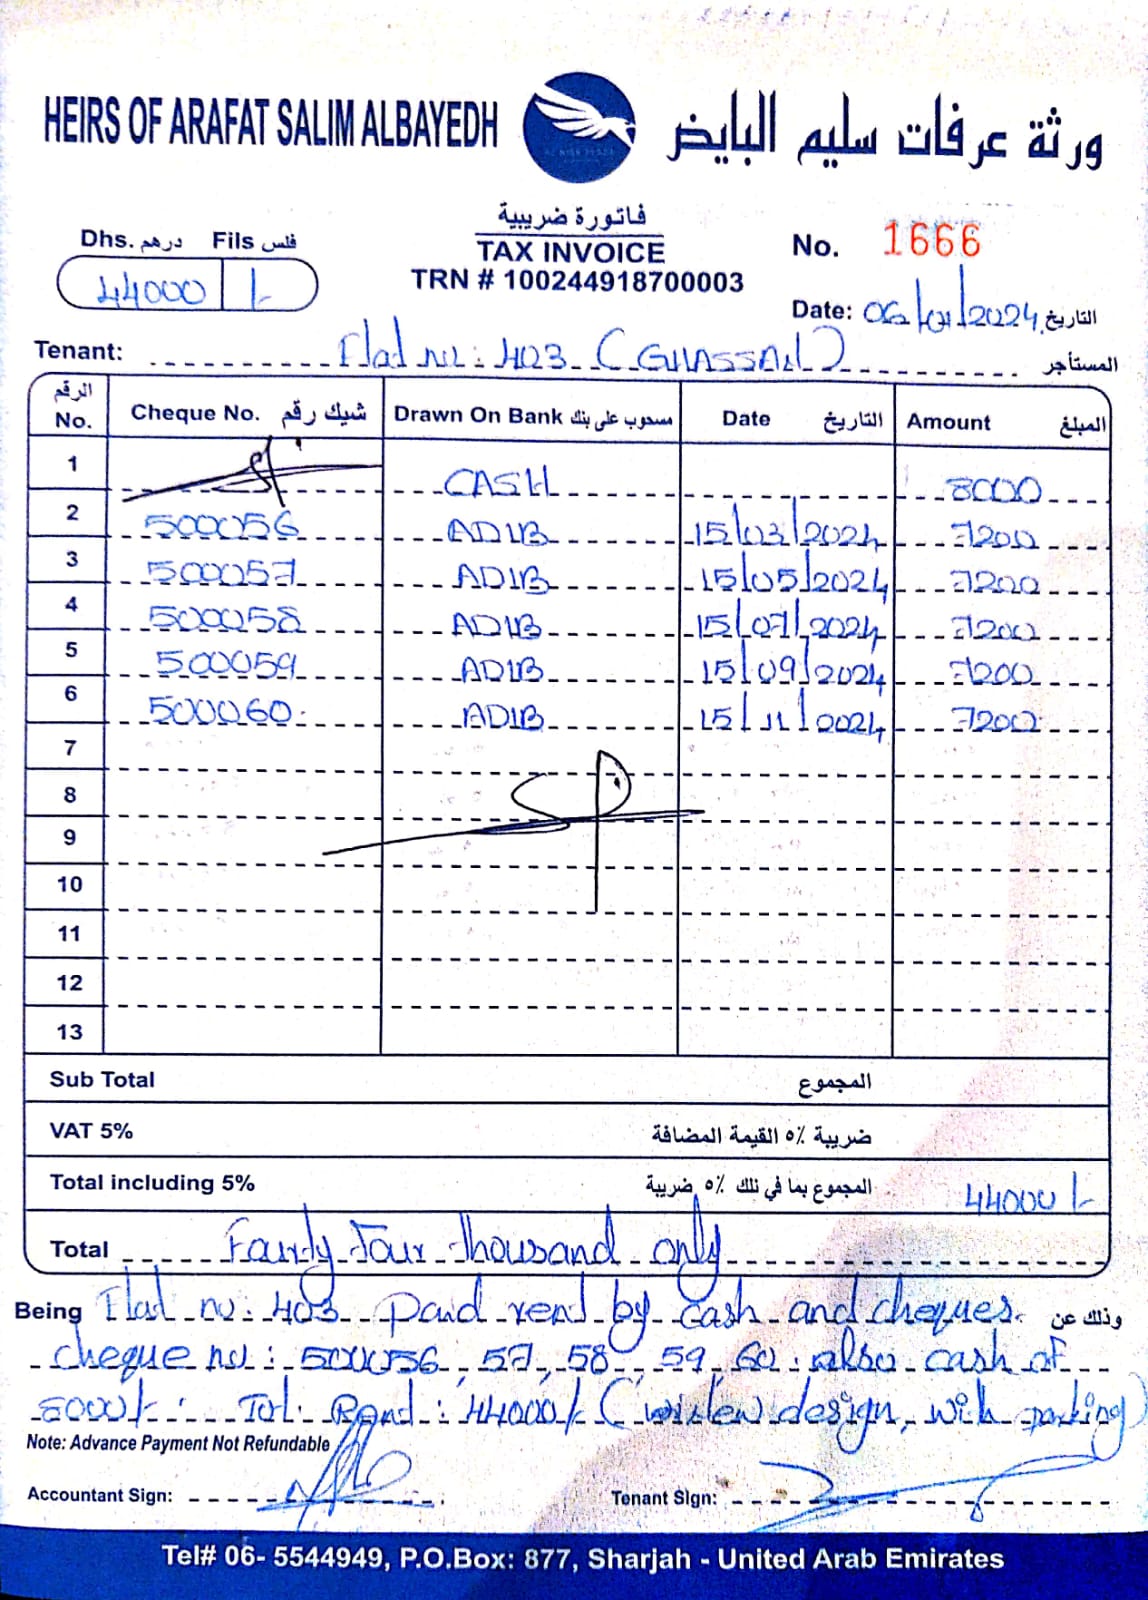 HEIRS OF ARAFAT SALIM ALBAYEDH
ورثة عرفات سليم البايض
فاتورة ضريبية
TAX INVOICE
TRN # 100244918700003
Dhs. درهم Fils فلس
44000 /-
No. 1666
Date: 06/01/2024 التاريخ
Tenant: Flat no: 403 (GHASSAN) المستأجر
الرقم No. Cheque No. شيك رقم Drawn On Bank مسحوب على بنك Date التاريخ Amount المبلغ
1 CASH 8000
2 500056 ADIB 15/03/2024 7200
3 500057 ADIB 15/05/2024 7200
4 500058 ADIB 15/07/2024 7200
5 500059 ADIB 15/09/2024 7200
6 500060 ADIB 15/11/2024 7200
7
8
9
10
11
12
13
Sub Total المجموع
VAT 5% ضريبة ٥٪ القيمة المضافة
Total including 5% المجموع بما في ذلك ٥٪ ضريبة 44000/-
Total Fourty Four thousand only
Being Flat no: 403 paid rent by cash and cheques. وذلك عن
cheque no: 500056, 57, 58, 59, 60. also cash of
8000/-. Tot. Rent: 44000/- ( design, with parking)
Note: Advance Payment Not Refundable
Accountant Sign: Tenant Sign:
Tel# 06- 5544949, P.O.Box: 877, Sharjah - United Arab Emirates